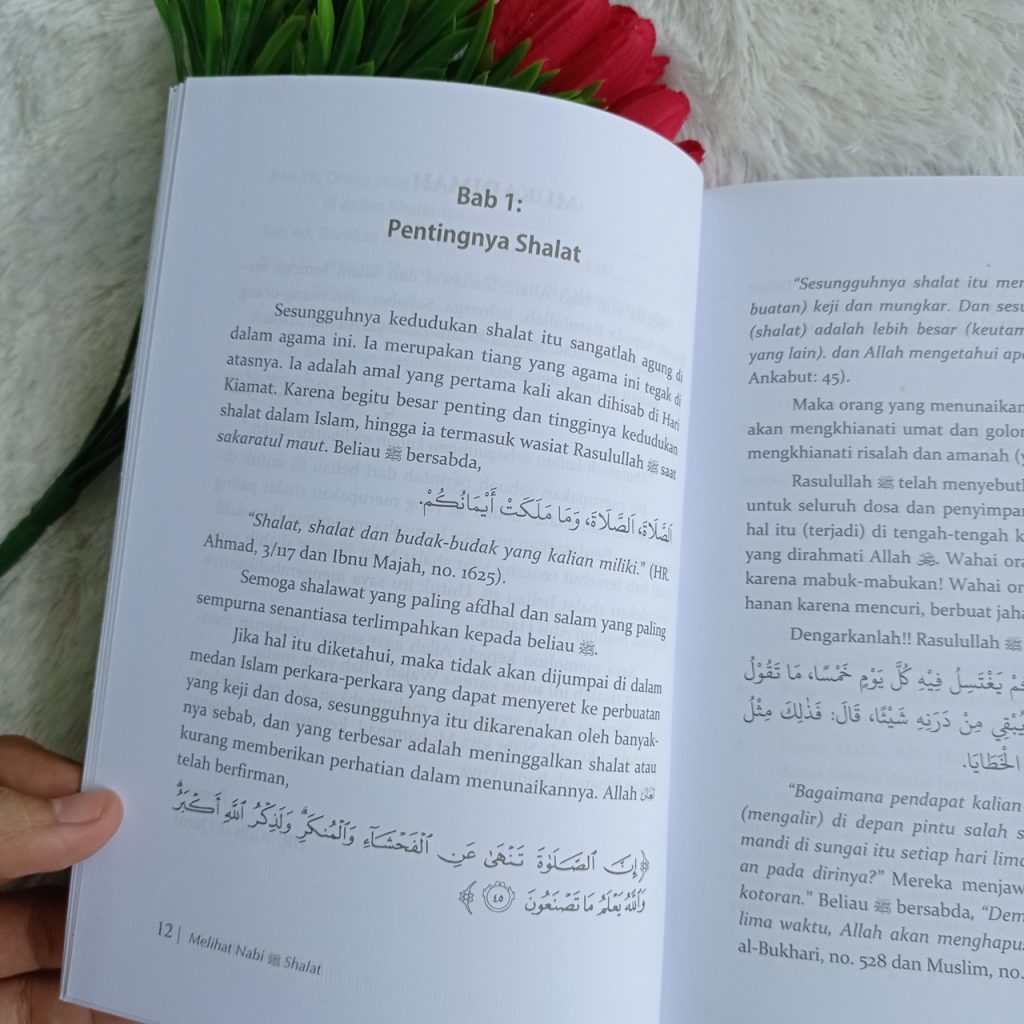 Bab 1:
Pentingnya Shalat
Sesungguhnya kedudukan shalat itu sangatlah agung di
dalam agama ini. Ia merupakan tiang yang agama ini tegak di
atasnya. Ia adalah amal yang pertama kali akan dihisab di Hari
Kiamat. Karena begitu besar penting dan tingginya kedudukan
shalat dalam Islam, hingga ia termasuk wasiat Rasulullah ﷺ saat
sakaratul maut. Beliau ﷺ bersabda,
اَلصَّلَاةَ، اَلصَّلَاةَ، وَمَا مَلَكَتْ أَيْمَانُكُمْ.
“Shalat, shalat dan budak-budak yang kalian miliki.” (HR.
Ahmad, 3/117 dan Ibnu Majah, no. 1625).
Semoga shalawat yang paling afdhal dan salam yang paling
sempurna senantiasa terlimpahkan kepada beliau ﷺ.
Jika hal itu diketahui, maka tidak akan dijumpai di dalam
medan Islam perkara-perkara yang dapat menyeret ke perbuatan
yang keji dan dosa, sesungguhnya itu dikarenakan oleh banyak-
nya sebab, dan yang terbesar adalah meninggalkan shalat atau
kurang memberikan perhatian dalam menunaikannya. Allah
telah berfirman,
﴿إِنَّ ٱلصَّلَوٰةَ تَنْهَىٰ عَنِ ٱلْفَحْشَآءِ وَٱلْمُنكَرِۗ وَلَذِكْرُ ٱللَّهِ أَكْبَرُۗ
وَٱللَّهُ يَعْلَمُ مَا تَصْنَعُونَ ٤٥﴾
12 | Melihat Nabi ﷺ Shalat
“Sesungguhnya shalat itu
buatan) keji dan mungkar. Dan
(shalat) adalah lebih besar
yang lain). dan Allah mengetahui
Ankabut: 45).
Maka orang yang menunaikan
akan mengkhianati umat dan
mengkhianati risalah dan amanah
Rasulullah ﷺ telah
untuk seluruh dosa dan
hal itu (terjadi) di tengah-tengah
yang dirahmati Allah. Wahai
karena mabuk-mabukan! Wahai
hanan karena mencuri, berbuat
Dengarkanlah!! Rasulullah ﷺ
يَغْتَسِلُ فِيْهِ كُلَّ يَوْمٍ خَمْسًا، مَا تَقُوْلُ
يُبْقِي مِنْ دَرَنِهِ شَيْئًا، قَالَ: فَذٰلِكَ مِثْلُ
الْخَطَايَا.
“Bagaimana pendapat kalian
(mengalir) di depan pintu salah
mandi di sungai itu setiap hari
an pada dirinya?” Mereka
kotoran.” Beliau ﷺ bersabda,
lima waktu, Allah akan
al-Bukhari, no. 528 dan Muslim, no.